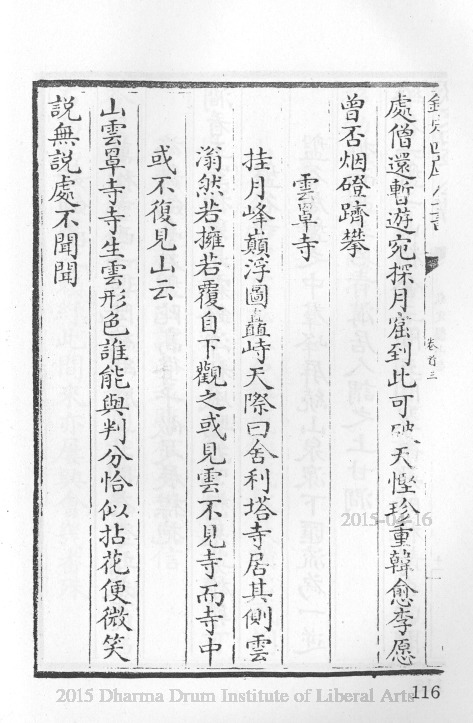 欽定四庫全書
卷首三
處僧還暫遊宛探月窟到此可破天慳珍重韓愈李愿
曾否烟磴躋攀
雲罩寺
挂月峰巔浮圖矗峙天際曰舍利塔寺居其側雲
滃然若擁若覆自下觀之或見雲不見寺而寺中
或不復見山云
山雲罩寺寺生雲形色誰能與判分恰似拈花便微笑
説無説處不聞聞
2015-02-16
116
2015 Dharma Drum Institute of Liberal Arts